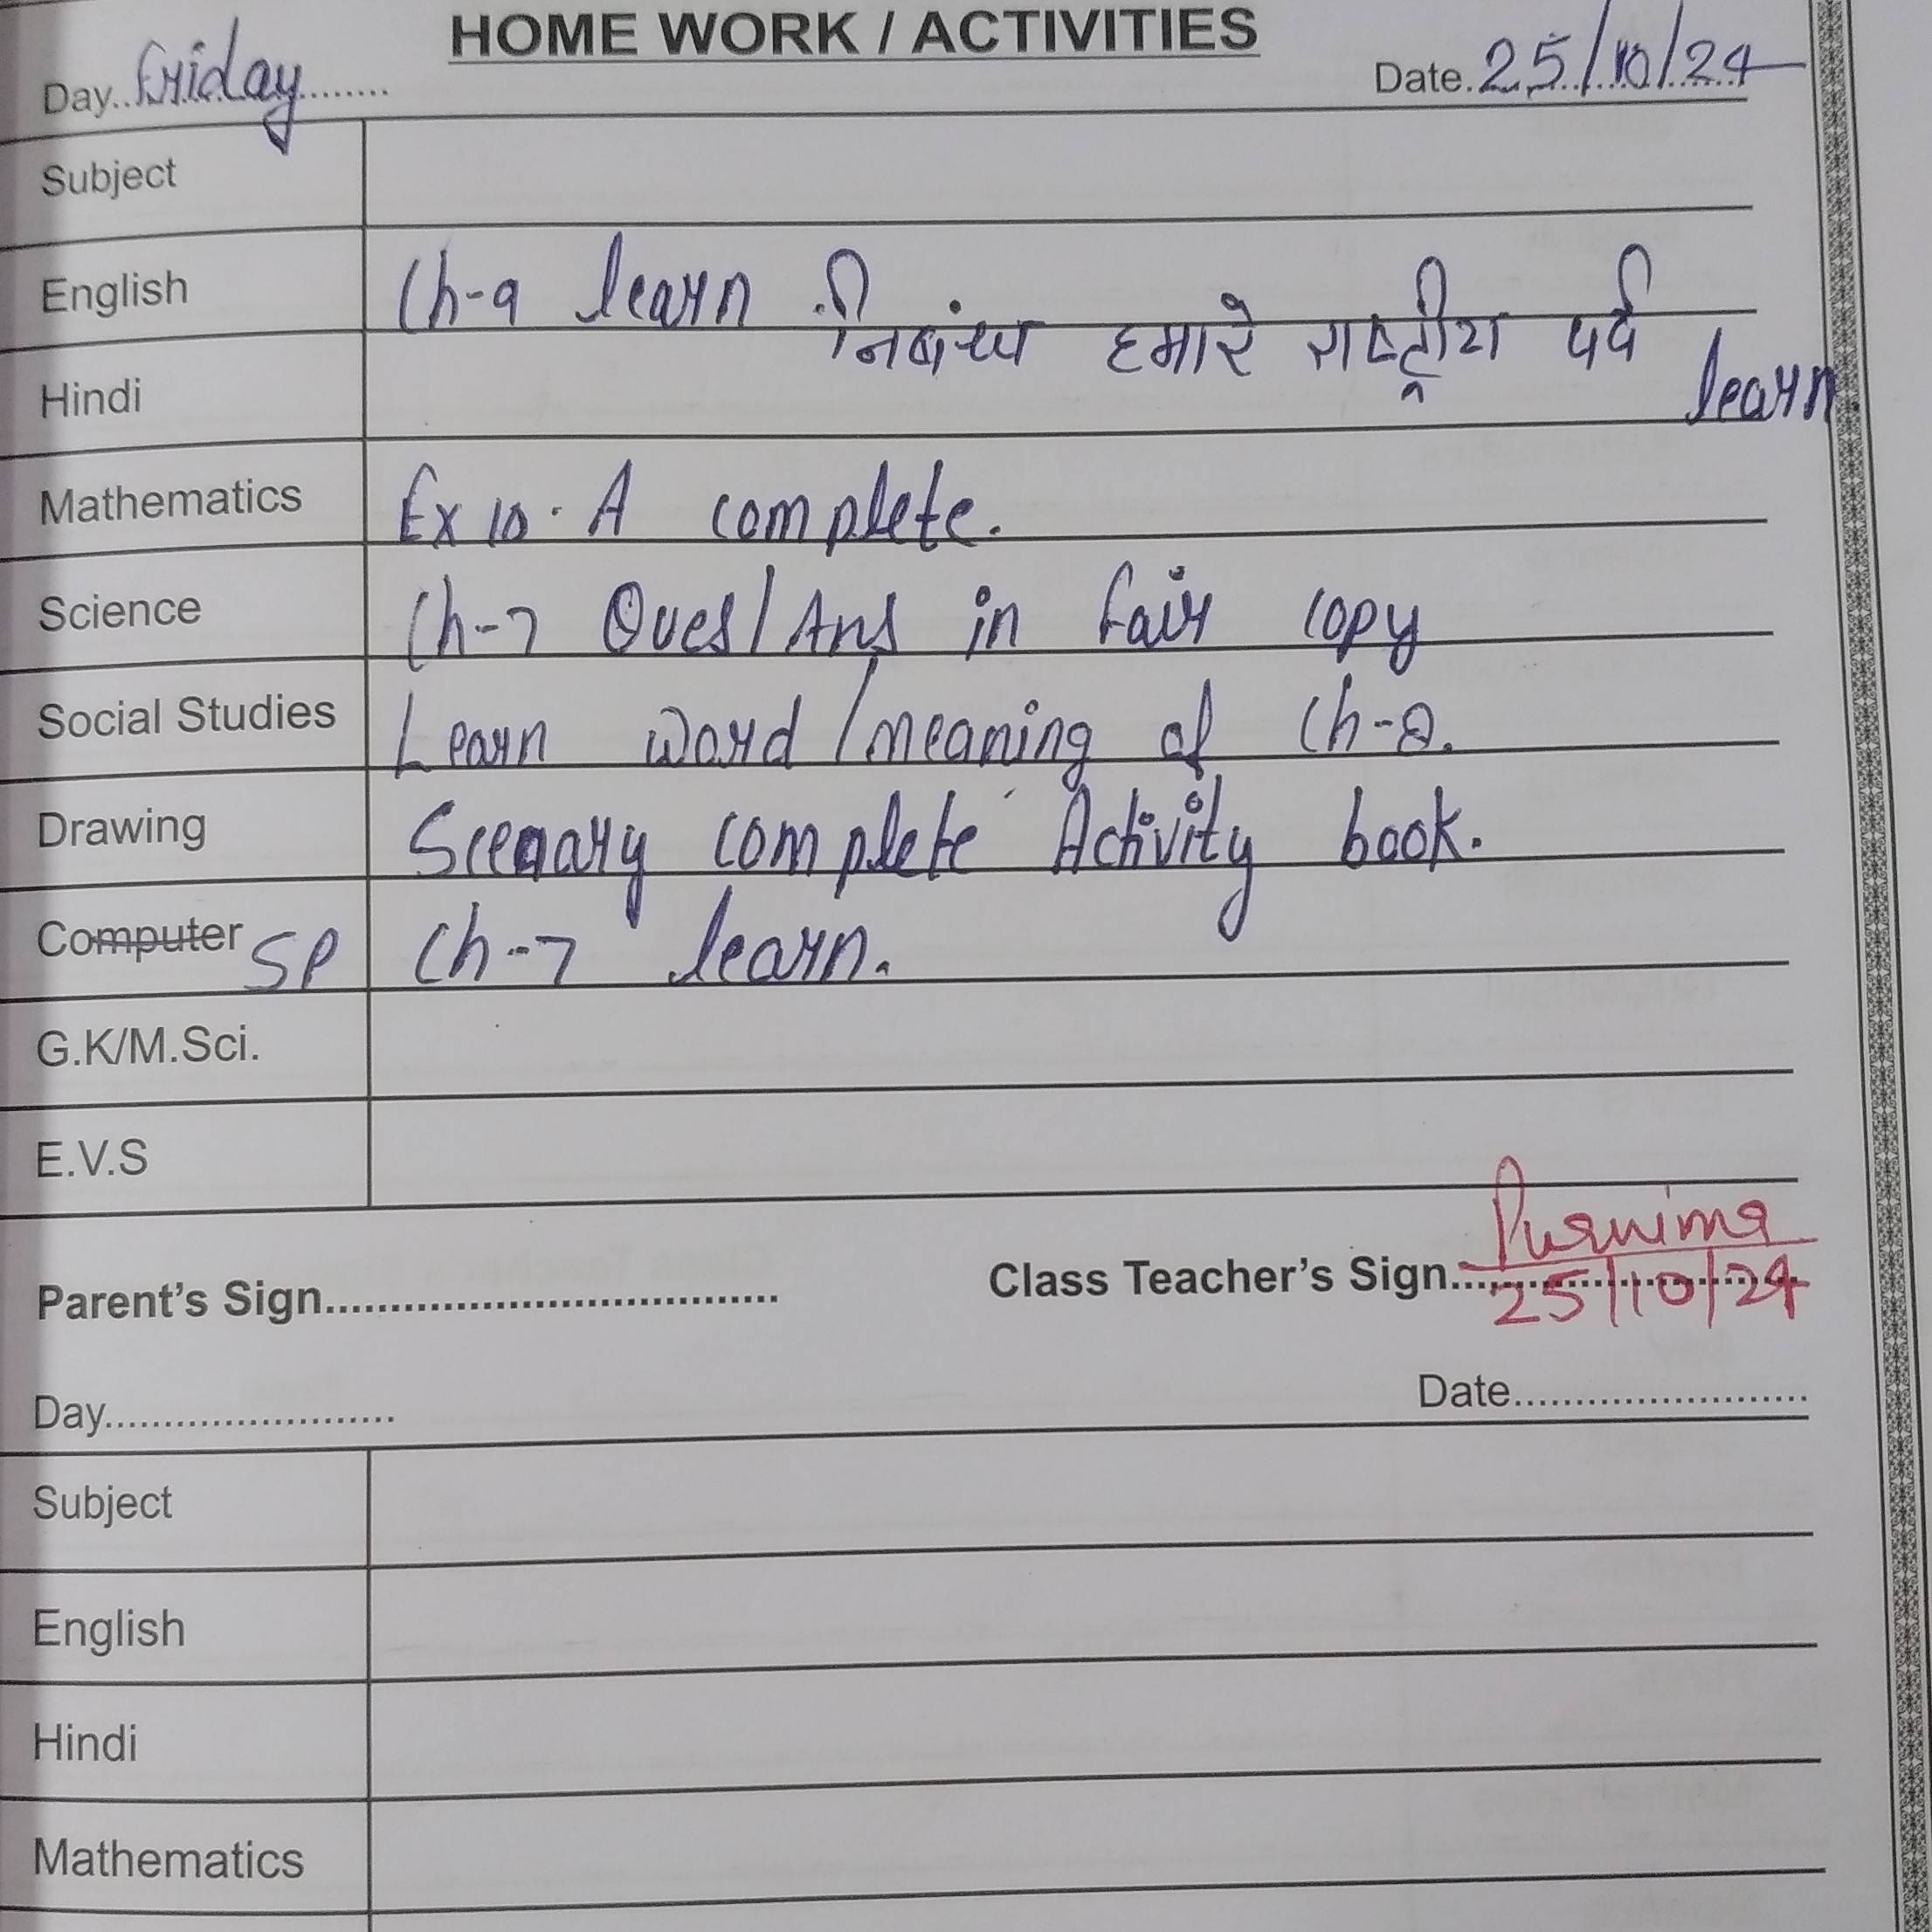 HOME WORK / ACTIVITIES
Day..Friday........ Date.25/10/24
Subject
English Ch-9 learn
Hindi निबंध हमारे राष्ट्रीय पर्व learn
Mathematics Ex 10. A complete.
Science Ch-7 Ques/Ans in fair copy
Social Studies Learn word/meaning of Ch-8.
Drawing Scenary complete Activity book.
Computer SP Ch-7 learn.
G.K/M.Sci.
E.V.S
Parent's Sign.................................. Class Teacher's Sign..........................Purnima
25/10/24
Day......................... Date.........................
Subject
English
Hindi
Mathematics